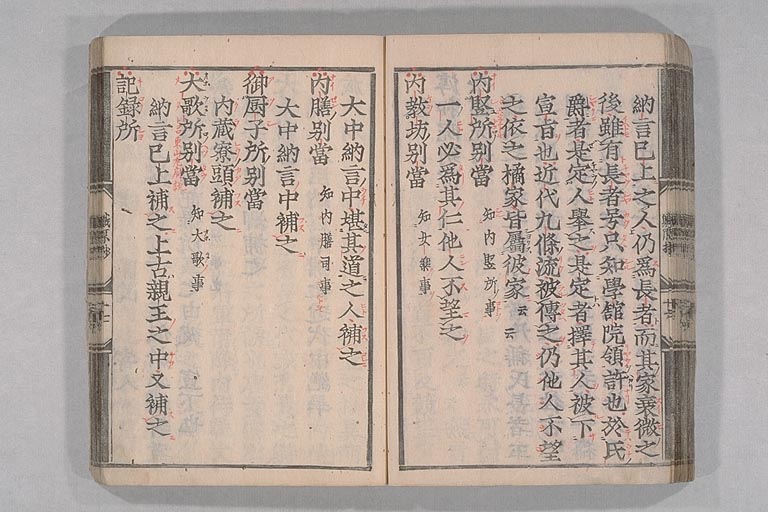 納言已上之人仍爲長者而其家衰微之
後雖有長者号只知學館院領許也於氏
爵者是定人舉之是定者擇其人被下
宣旨也近代九條流被傳之仍他人不望
之依之橘家皆屬彼家云云
内竪所別當 知内竪所事
一人必爲其仁他人不望之
内教坊別當 知女樂事
大中納言中堪其道之人補之
内膳別當 知内膳司事
大中納言中補之
御厨子所別當
内藏寮頭補之
大歌所別當 知大歌事
納言已上補之上古親王之中又補之
記録所
職原抄
十七